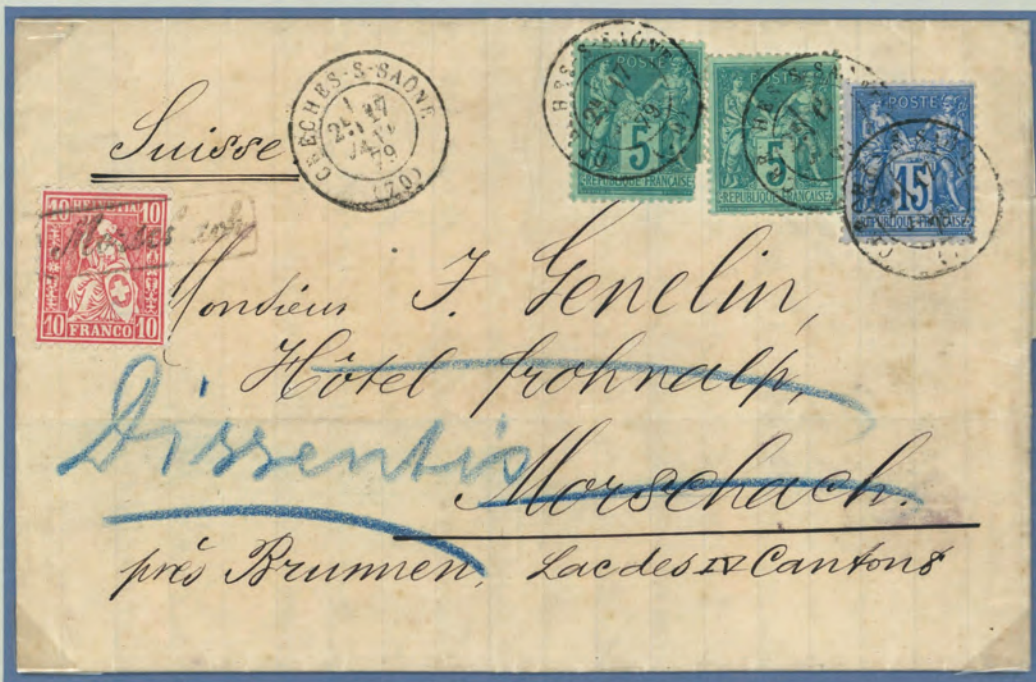 CRECHES-S-SAÔNE
17
79
(70)
POSTE
5
REPUBLIQUE FRANÇAISE
5
REPUBLIQUE FRANÇAISE
POSTE
15
REPUBLIQUE FRANÇAISE
Suisse
10 HELVETIA 10
10 FRANCO 10
Monsieur J. Genelin,
Hôtel frohnalp,
Dissentis
Morschach.
près Brunnen, Lac des IV Cantons